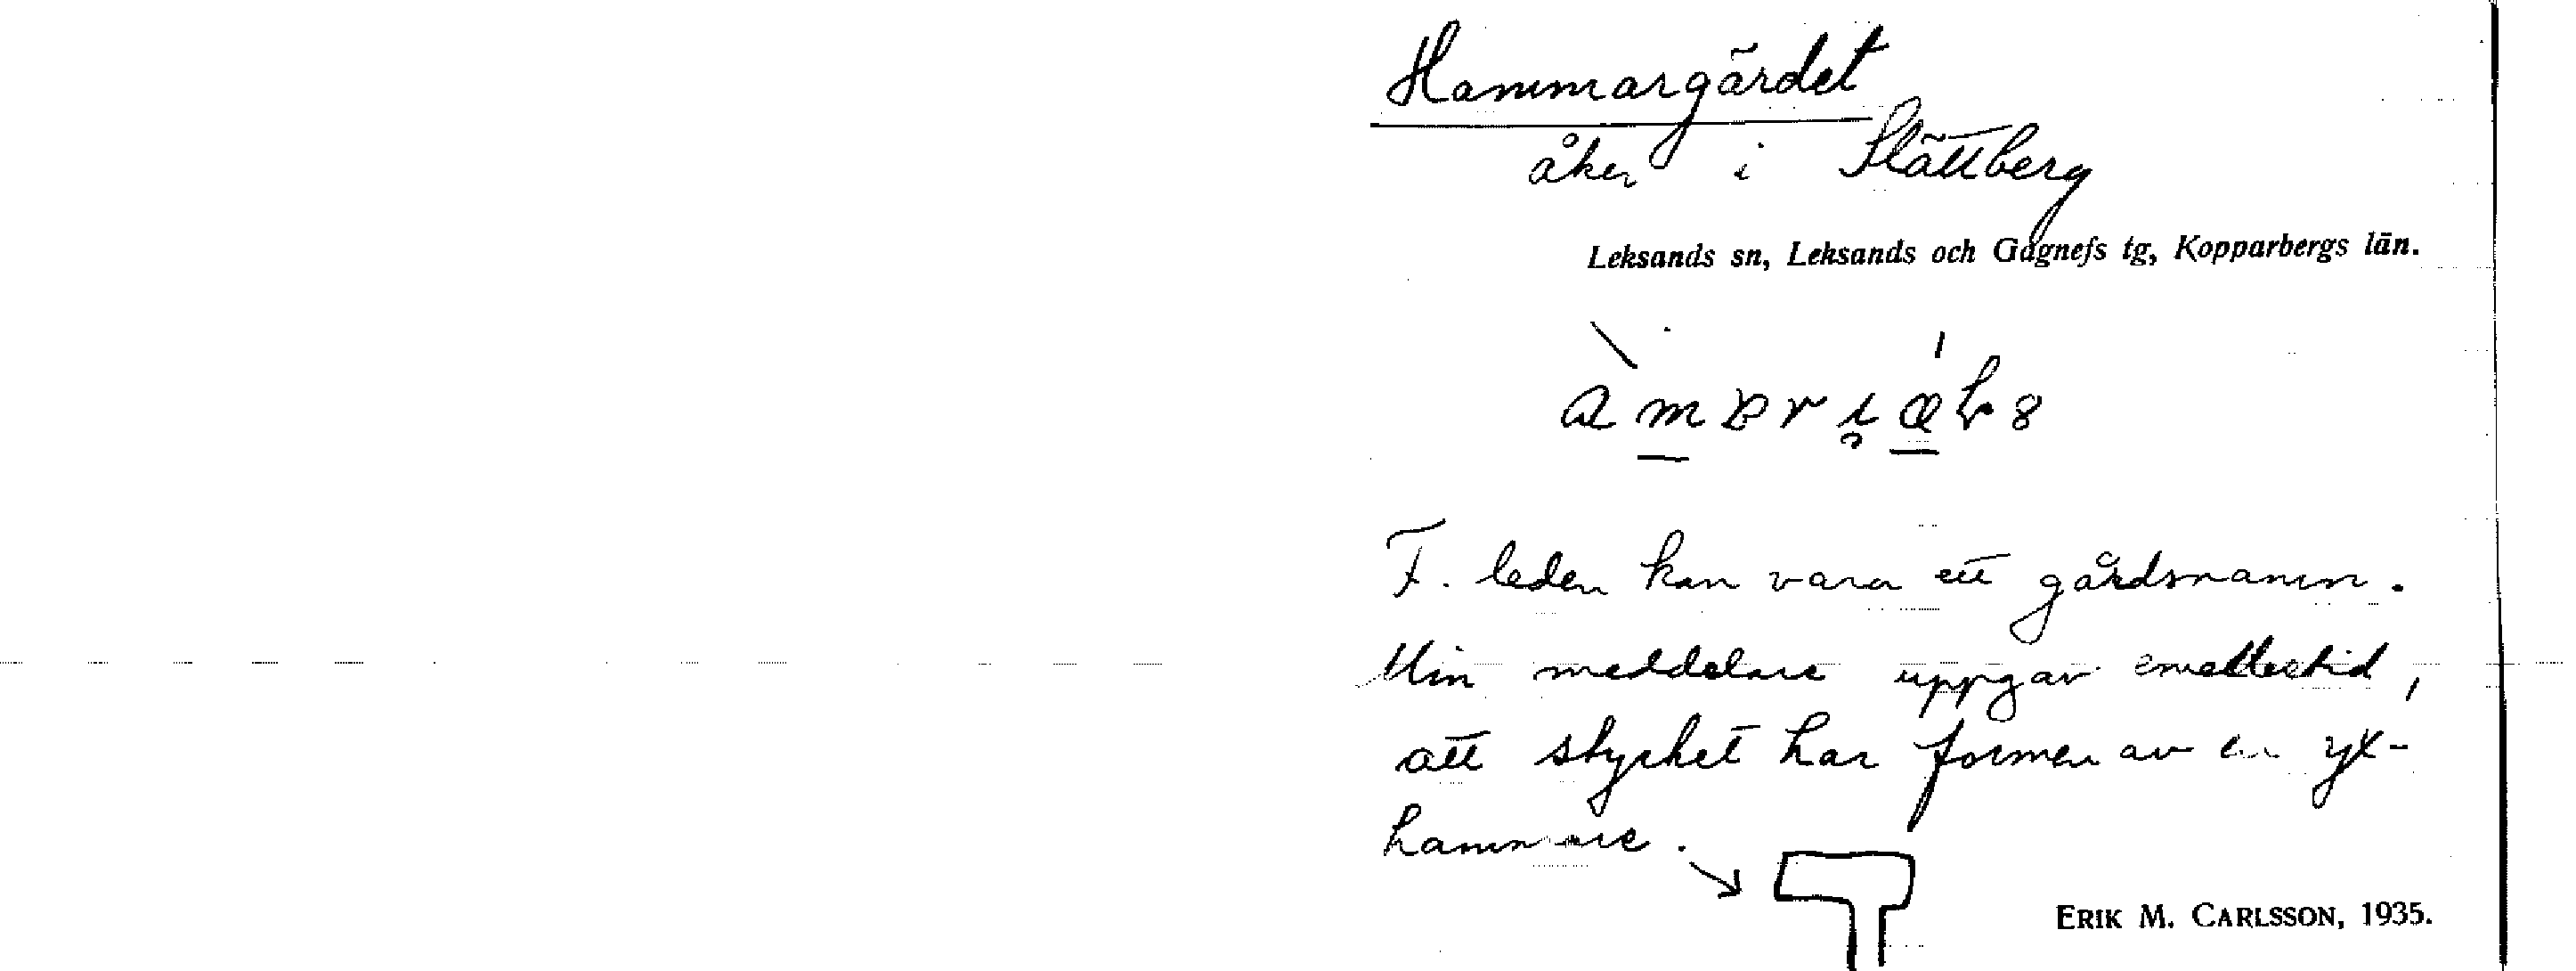 Hammargärdet
åker i Slättberg
Leksands sn, Leksands och Gagnefs tg, Kopparbergs län.
F. leden kan vara ett gårdsnamn.
Min meddelare uppgav emellertid,
att stycket har formen av en yx-
hammare.
ERIK M. CARLSSON, 1935.